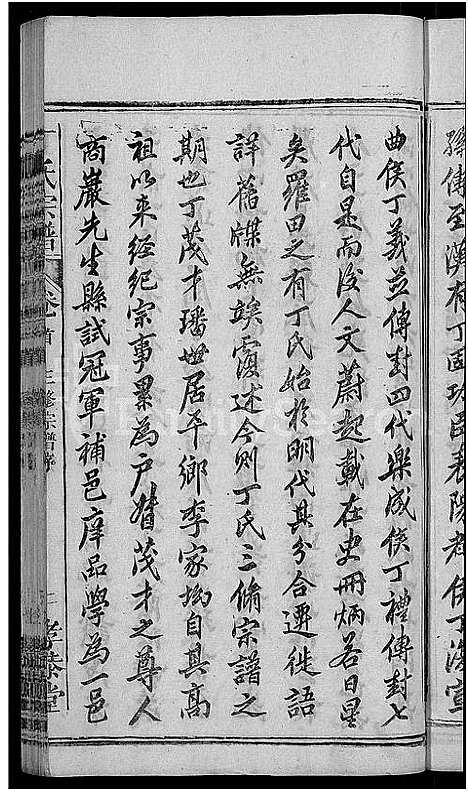 孫傳至漢有丁固功臣表陽都侯丁漢宣
曲侯丁義並傳封四代樂成侯丁禮傳封七
代自是而後人文蔚起載在史冊炳若日星
矣羅田之有丁氏始於明代其分合遷徙語
詳舊牒無竢覆述今則丁氏三脩宗譜之
期也丁茂才璠世居平鄉李家坳自其高
祖以來經紀宗事累為戶督茂才之尊人
商巖先生縣試冠軍補邑庠品學為一邑
丁氏宗譜 卷首 三修宗譜序 二